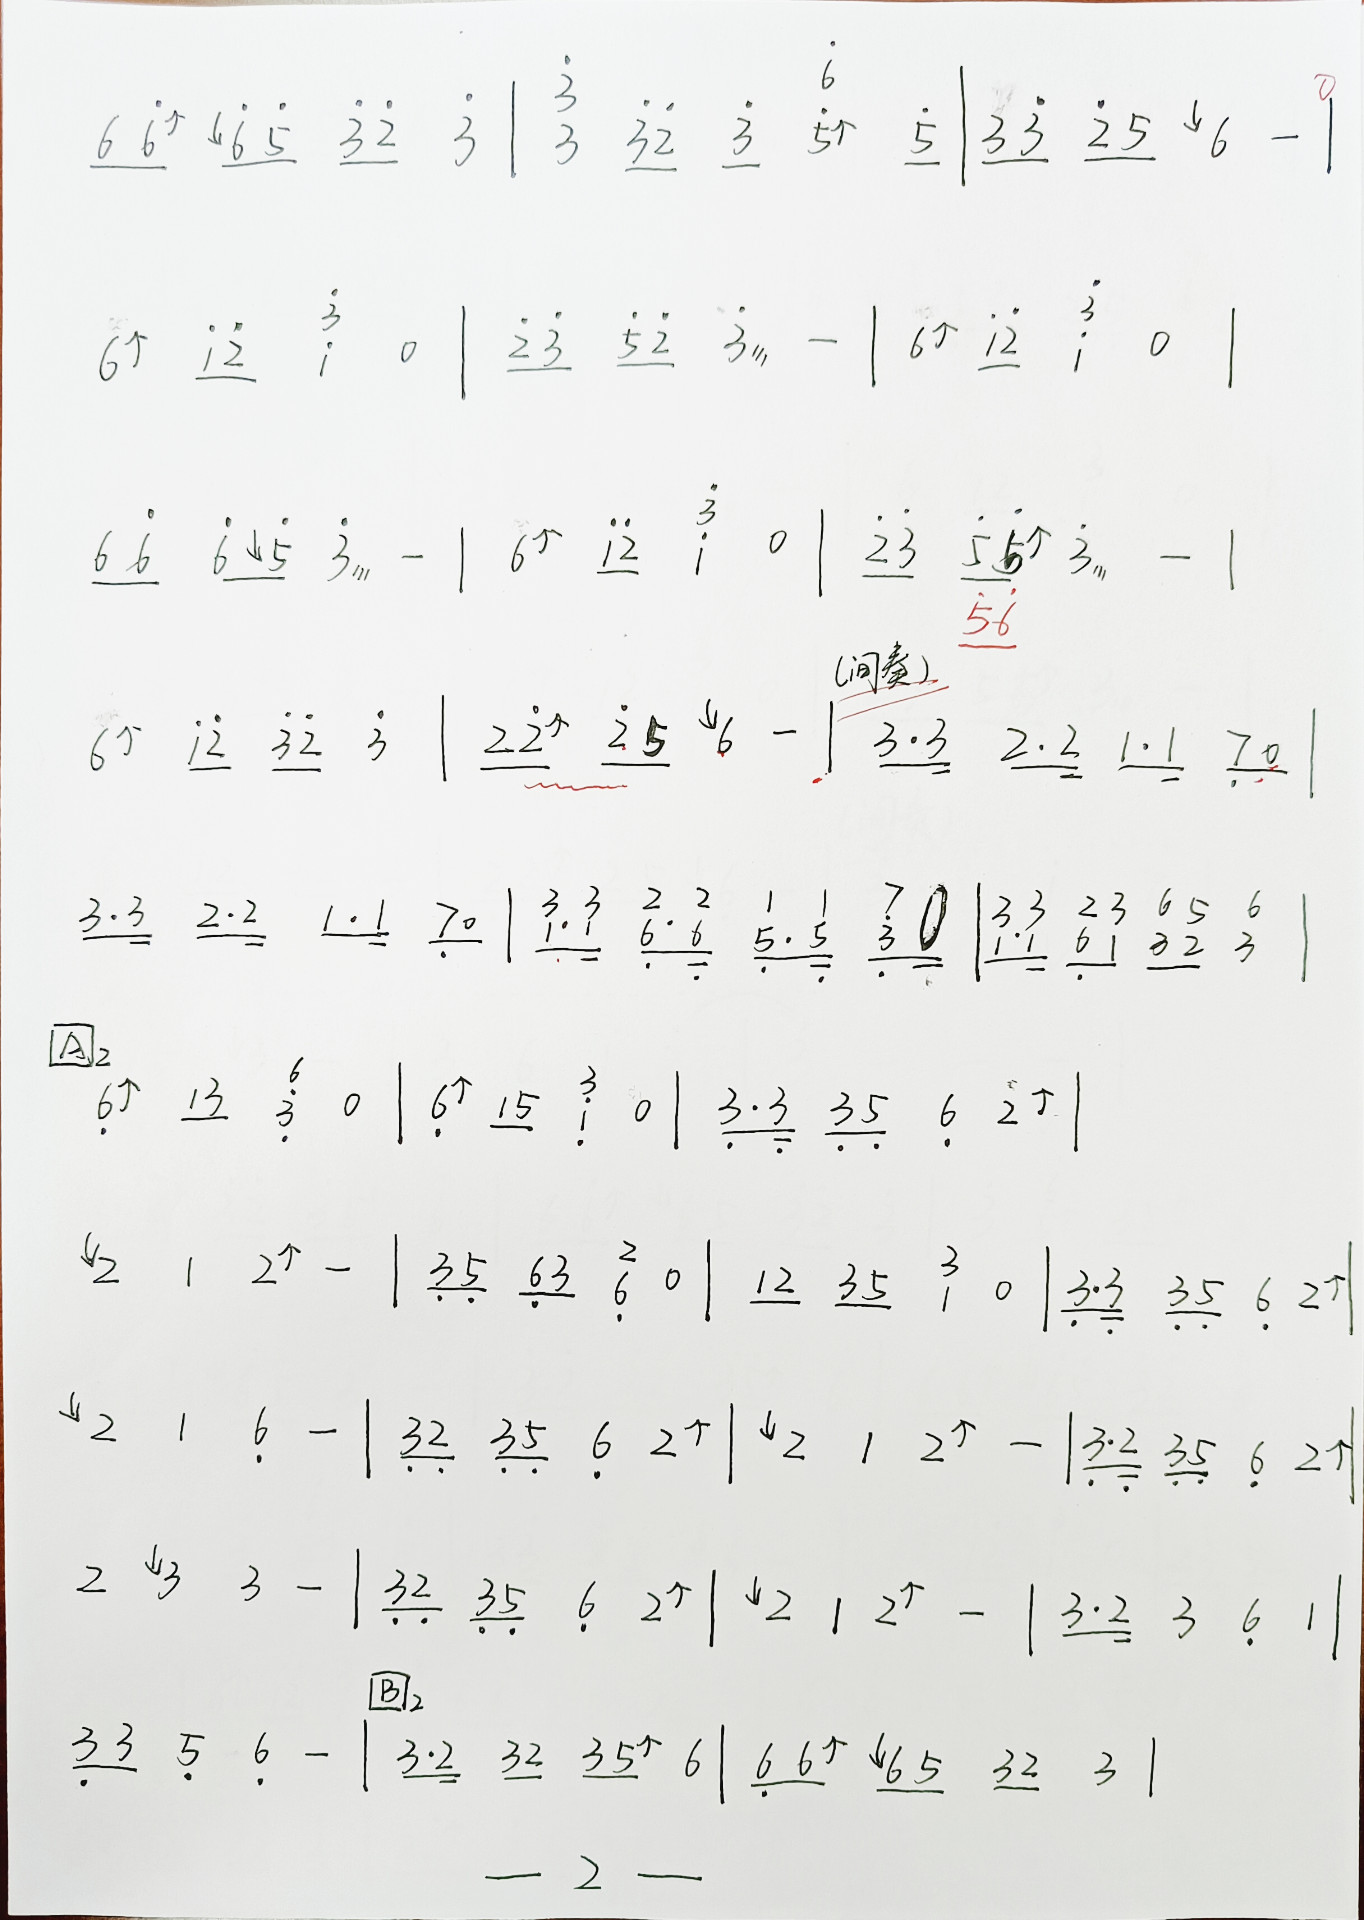 6 6̇↑ ↓6̇ 5̇ 3̇ 2̇ 3̇ | 3̇ 3 3̇ 2̇ 3̇ 6̇ 5̇↑ 5̇ | 3 3̇ 2̇ 5 ↓6 – | 0
6↑ 1̇ 2̇ 3̇ i 0 | 2̇ 3̇ 5̇ 2̇ 3̇/// – | 6↑ 1̇ 2̇ 3̇ i 0 |
6 6̇ 6̇ ↓5̇ 3̇/// – | 6↑ 1̇ 2̇ 3̇ i 0 | 2̇ 3̇ 5̇ 6̇↑ 3̇/// – |
5̇ 6̇
(间奏)
6↑ 1̇ 2̇ 3̇ 2̇ 3̇ | 2 2̇↑ 2̇ 5 ↓6 – | 3·3 2·2 1·1 7̣ 0 |
3·3 2·2 1·1 7̣ 0 | 3 3 2 2 1 1 7 | 3 3 2 3 6 5 6
1·1 6̣·6̣ 5̣·5̣ 3̣ 0 | 1·1 6̣ 1 3 2 3 |
A2
6̣↑ 1 3 6 3̣ 0 | 6̣↑ 1 5 3 1̣ 0 | 3̣·3̣ 3̣ 5̣ 6̣ 2↑ |
↓2 1 2↑ – | 3̣ 5̣ 6̣ 3 2 6̣ 0 | 1 2 3 5 3 1 0 | 3̣·3̣ 3̣ 5̣ 6̣ 2↑ |
↓2 1 6̣ – | 3̣ 2̣ 3̣ 5̣ 6̣ 2↑ | ↓2 1 2↑ – | 3̣·2̣ 3̣ 5̣ 6̣ 2↑ |
2 ↓3 3 – | 3̣ 2̣ 3̣ 5̣ 6̣ 2↑ | ↓2 1 2↑ – | 3·2 3 6̣ 1 |
B2
3̣ 3 5̣ 6̣ – | 3·2 3 2 3 5↑ 6 | 6̣ 6↑ ↓6 5 3 2 3 |
— 2 —